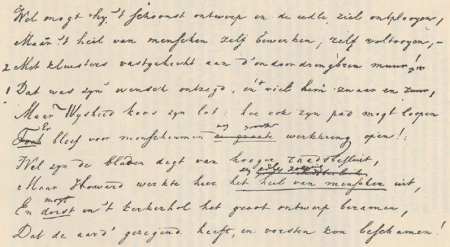 Wel mogt hy 't schoonst ontwerp en de edle ziel ontplooyen,
Maar 't heil van menschen zelf bewerken, zelf voltooyen, -
2 Met kluisters vastgehecht aan d'ondoordringbren muur!
1 Dat was zyn' wensch ontzegd, en 't viel hem zwaar en zuur,
Maar Wysheid koos zyn lot; hoe ook zyn pad mogt loopen
Er
Toch bleef voor menschenmin werkkring open!
nog groote
Wel zyn de bladen digt van hooger raadsbesluit,
Maar Howard werkte hier het heil van menschen uit,
mogt
En dorst in 't kerkerhol het groot ontwerp beramen,
Dat de aard' gezegend heeft, en vorsten kon beschamen!